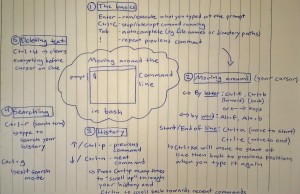 ① The basics
Enter - run/execute what you typed at the prompt
Ctrl+C - stop/interrupt command running
Tab - autocomplete (eg file names or directory paths)
↑ - repeat previous command
⑤ Deleting text
Ctrl+U → clears
everything before
cursor on line
Moving around
the
prompt
$
Command
line
in bash
② Moving around (your cursor)
→ By letter: Ctrl+F, Ctrl+b
(forward) (back)
or ← →
→ By word: Alt+F, Alt+b
Start/End of line: Ctrl+a (move to start)
Ctrl+e (move to end)
→ Ctrl+ will move to start of
line then back to previous position
when you type it again
④ Searching
Ctrl+r (search term)
→ type to
search for
your history
Ctrl+g
→ exit search
mode
③ History
↑ / Ctrl+p - previous
command
↓ / Ctrl+n - next
command
→ Press Ctrl+p many times
to "scroll up" through
your history and
Ctrl+n to scroll back towards recent commands